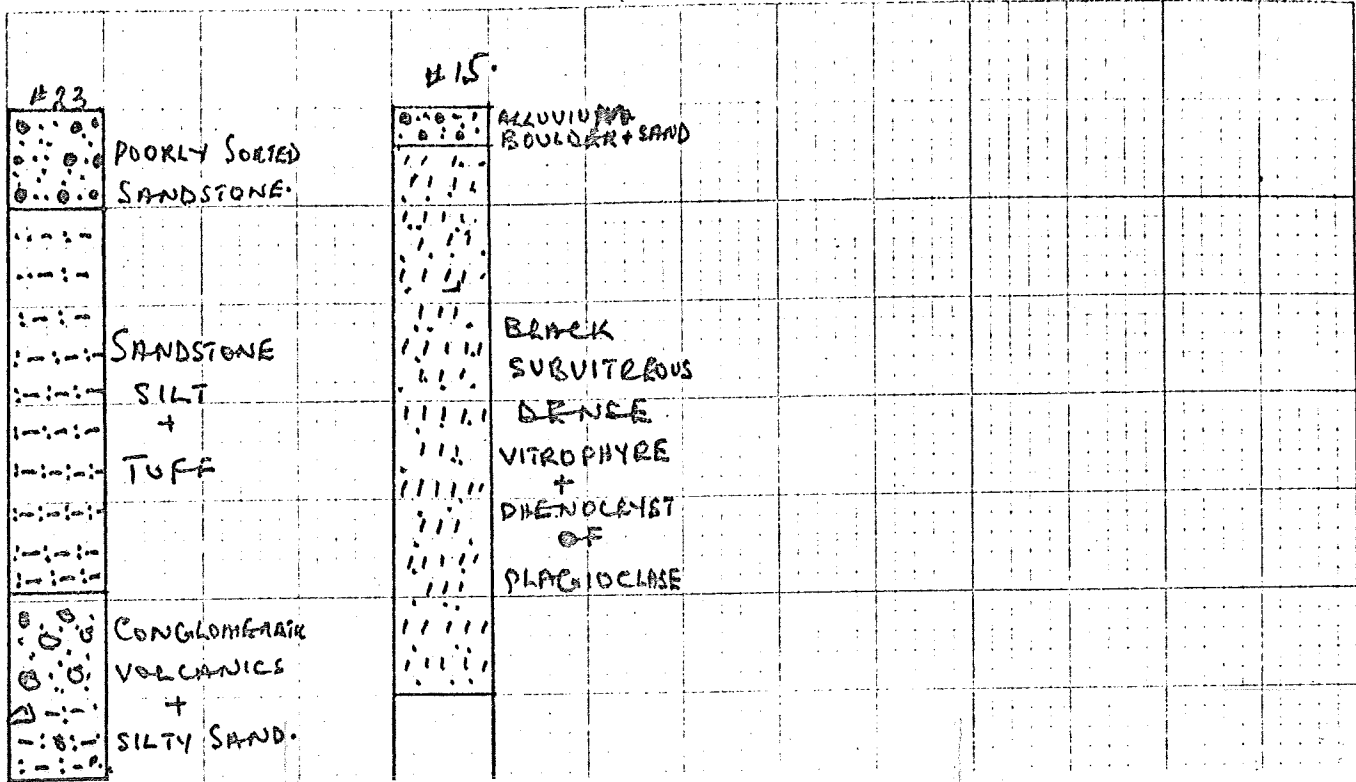 #23
POORLY SORTED
SANDSTONE.
SANDSTONE
SILT
+
TUFF
CONGLOMERATE
VOLCANICS
+
SILTY SAND.
#15.
ALLUVIUM
BOULDER + SAND
BLACK
SUBVITREOUS
DENCE
VITROPHYRE
+
PHENOCRYST
OF
PLAGIOCLASE